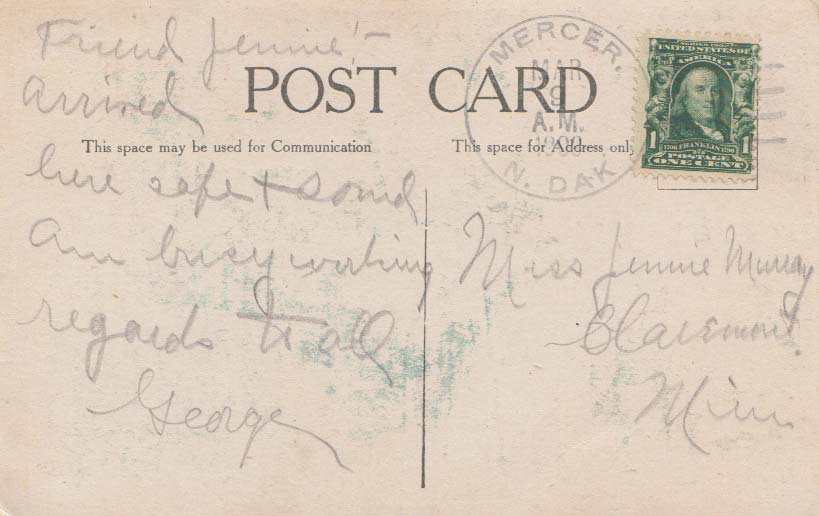 Friend Jennie:—
arrived
POST CARD
This space may be used for Communication
This space for Address only
here safe + sound
Am busy working
regards to all
George
Miss Jennie Murray
Claremont.
Minn
MERCER.
MAR
9
A.M.
N. DAK
SERIES 1902
UNITED STATES OF
AMERICA
1706 FRANKLIN 1790
1 POSTAGE 1
ONE CENT